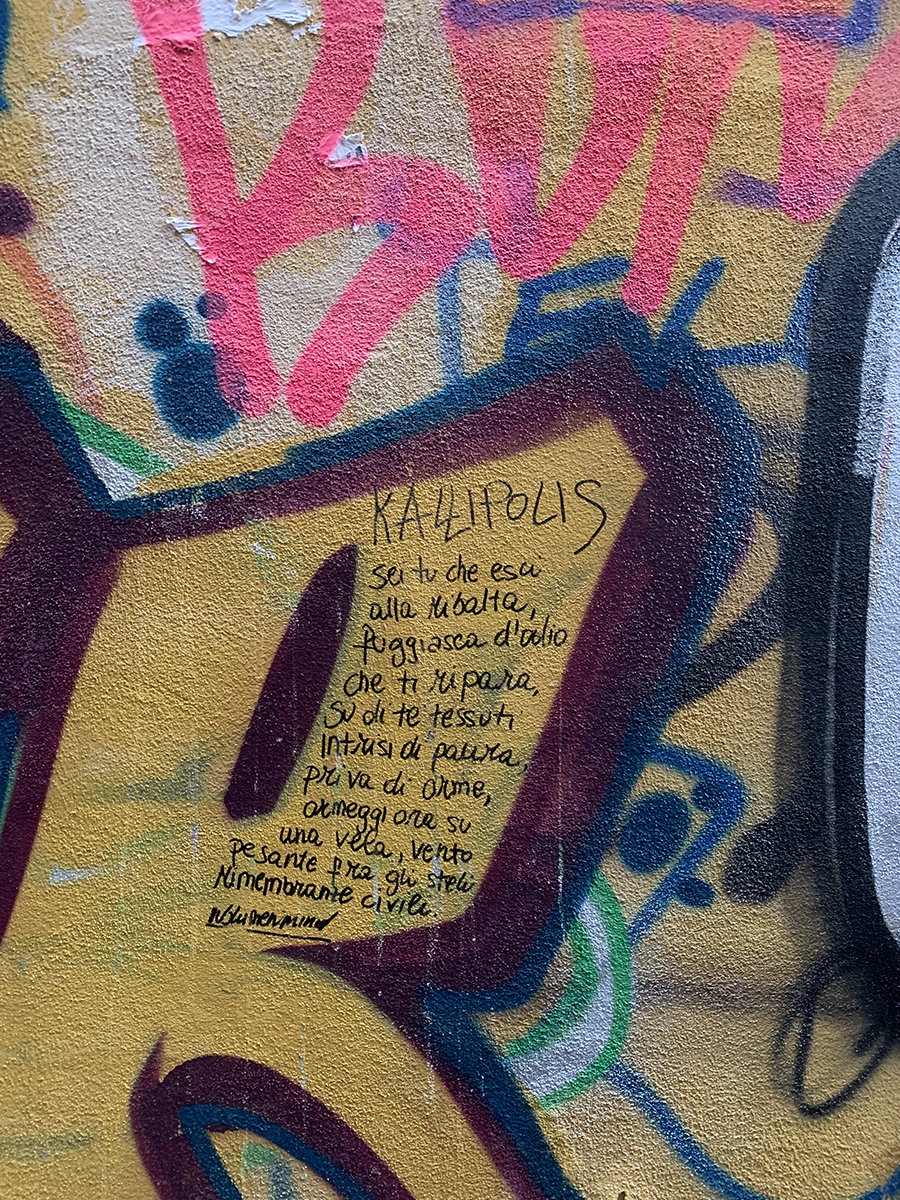 KALLIPOLIS
Sei tu che esci
alla ribalta,
fuggiasca d'odio
che ti ripara,
Su di te tessuti
intrisi di paura,
priva di orme,
ormeggi ora su
una vela, vento
pesante fra gli steli
Rimembrante civili.